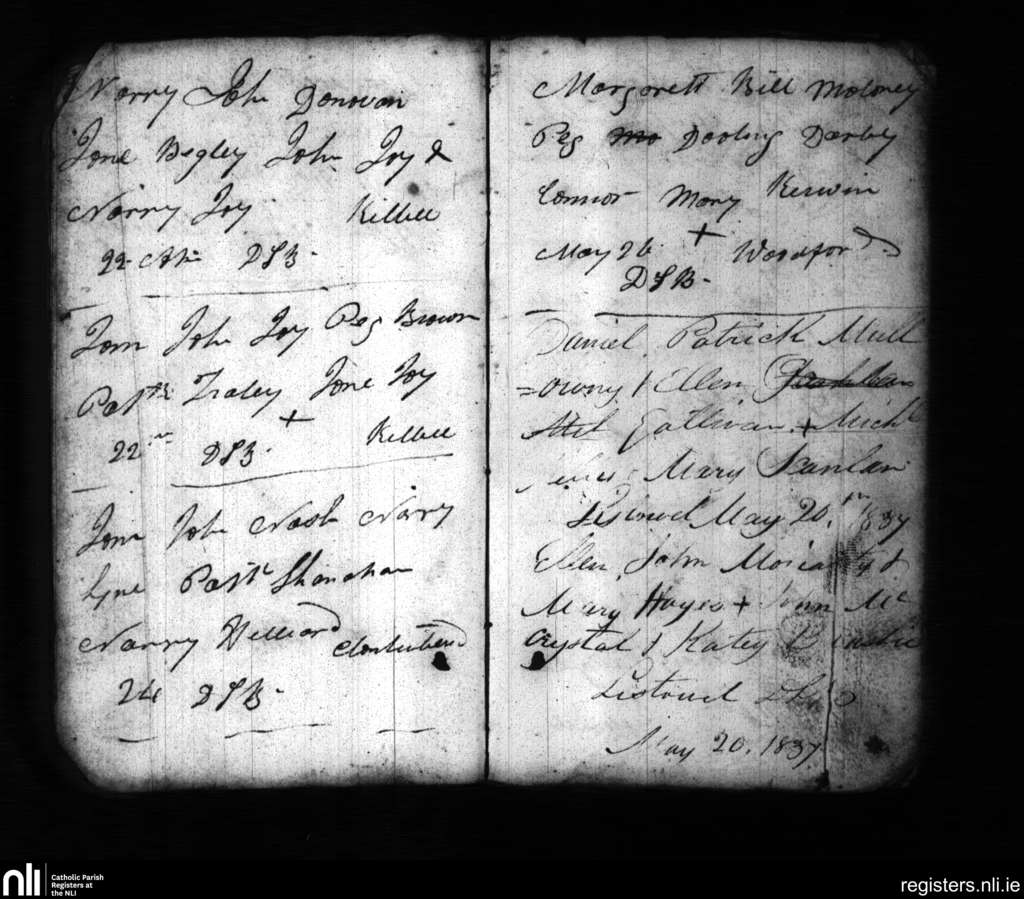 Norry John Donovan
Jone Begley John Joy &
Norry Joy Killell
22 DSB.
Tom John Joy Peg Brown
Patk Traley Jone Joy
22nd DSB. + Killell
Tom John Nash Norry
Lyne Patk Shanahan
Norry Hilliard
24 DSB.
Margarett Bill Moloney
Peg Mo Dooling Darby
Connor Mary Kerwin
May 26 + Woodford
DSB.
Daniel, Patrick Mull
=owny / Ellen
Gallivan + Michl
Mary Scanlan
Listowel May 20, 1837
Ellen, John Moriarty &
Mary Hayes + John Mc
Crystal / Katey
Listowel
May 20, 1837
nli
Catholic Parish
Registers at
the NLI
registers.nli.ie